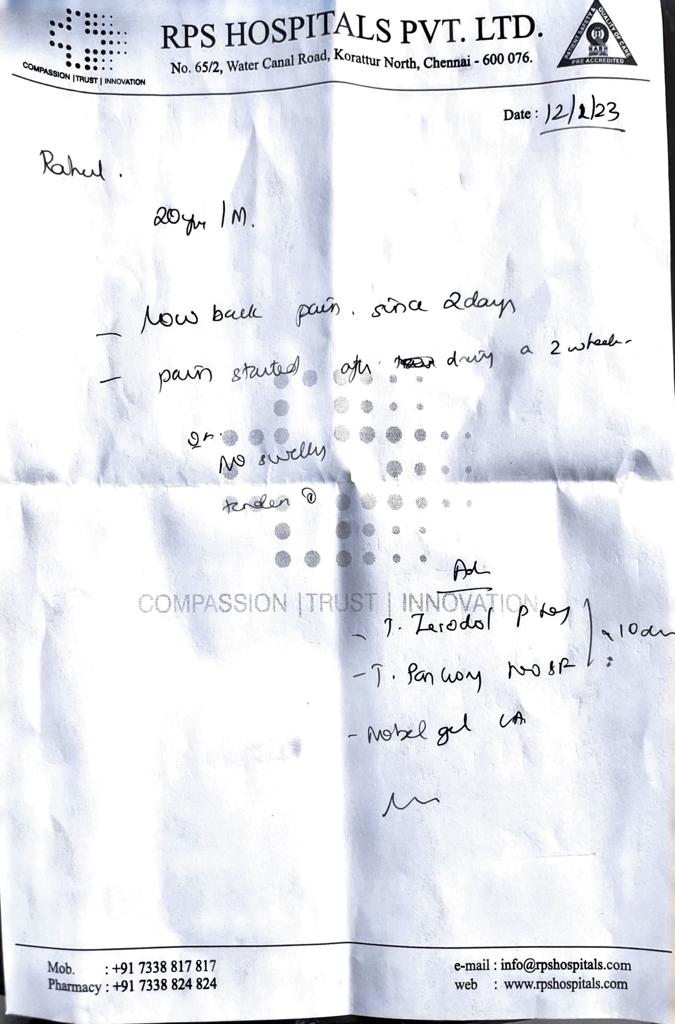 RPS HOSPITALS PVT. LTD.
No. 65/2, Water Canal Road, Korattur North, Chennai - 600 076.
COMPASSION | TRUST | INNOVATION
PRE ACCREDITED
Date : 12/2/23
Rahul.
20yr /M.
- Low back pain. since 2days
- pain started after a 2 wheeler
No swelling
tender
COMPASSION | TRUST | INNOVATION
- T. Zerodol P
- T. Pan 40mg
- gel LA
Mob. : +91 7338 817 817
Pharmacy : +91 7338 824 824
e-mail : info@rpshospitals.com
web : www.rpshospitals.com